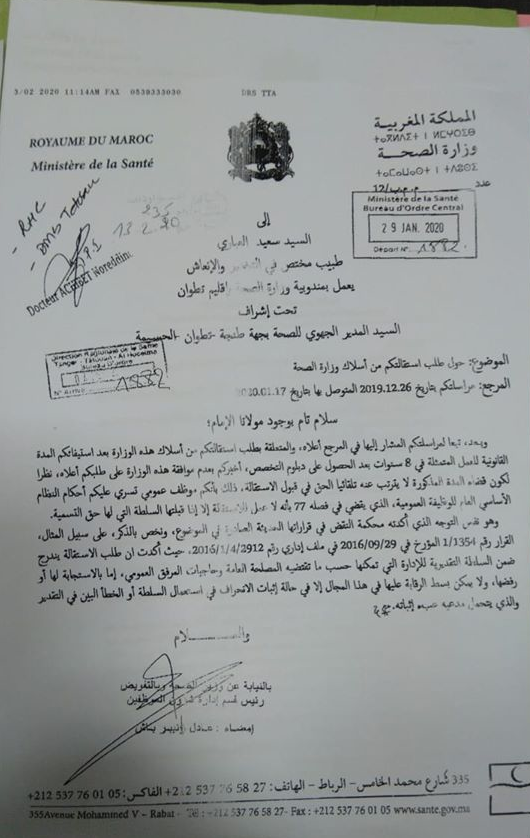 3/02 2020 11:14AM FAX 0539333030 DRS TTA
ROYAUME DU MAROC
Ministère de la Santé
المملكة المغربية
ⵜⴰⴳⵍⴷⵉⵜ ⵏ ⵍⵎⵖⵔⵉⴱ
وزارة الصحة
ⵜⴰⵎⴰⵡⴰⵙⵜ ⵏ ⵜⴷⵓⵙⵉ
عدد
م.م.ب/12
Ministère de la Santé
Bureau d'Ordre Central
29 JAN. 2020
Départ N° 1882
- RHC
- DMB Tétouan
235
13 2 20
Docteur ACHBET Noreddine
إلى
السيد سعيد
طبيب مختص في التخدير والإنعاش
يعمل بمندوبية وزارة الصحة بإقليم تطوان
تحت إشراف
السيد المدير الجهوي للصحة بجهة طنجة -تطوان -الحسيمة
Direction Régionale de la Santé
Tanger - Tétouan - Al Hoceima
Bureau d'ordre
N° Arrivé 1882
الموضوع: حول طلب استقالتكم من أسلاك وزارة الصحة
المرجع: مراسلتكم بتاريخ 2019.12.26 المتوصل بها بتاريخ 2020.01.17
سلام تام بوجود مولانا الإمام؛
وبعد، تبعا لمراسلتكم المشار إليها في المرجع أعلاه، والمتعلقة بطلب استقالتكم من أسلاك هذه الوزارة بعد استيفائكم المدة
القانونية للعمل المتمثلة في 8 سنوات بعد الحصول على دبلوم التخصص، أخبركم بعدم موافقة هذه الوزارة على طلبكم أعلاه، نظرا
لكون قضاء المدة المذكورة لا يترتب عنه تلقائيا الحق في قبول الاستقالة، ذلك بأنكم موظف عمومي تسري عليكم أحكام النظام
الأساسي العام للوظيفة العمومية، الذي يقضي في فصله 77 بأنه لا عمل للاستقالة إلا إذا قبلتها السلطة التي لها حق التسمية.
وهو نفس التوجه الذي أكدته محكمة النقض في قراراتها الحديثة الصادرة في الموضوع، ونخص بالذكر، على سبيل المثال،
القرار رقم 1/1354 المؤرخ في 2016/09/29 في ملف إداري رقم 2015/1/4/2912، حيث أكدت ان طلب الاستقالة يندرج
ضمن السلطة التقديرية للإدارة التي تمكنها حسب ما تقتضيه المصلحة العامة وحاجيات المرفق العمومي، إما بالاستجابة لها أو
رفضها، ولا يمكن بسط الرقابة عليها في هذا المجال إلا في حالة إثبات الانحراف في استعمال السلطة أو الخطأ البين في التقدير
والذي يتحمل مدعيه عبء إثباته.
والســـــلام
بالنيابة عن وزير الصحة وبالتفويض
رئيس قسم إدارة شؤون الموظفين
إمضاء : عادل
335 شارع محمد الخامس - الرباط - الهاتف: 27 58 76 537 212+ الفاكس: 05 01 76 537 212+
335Avenue Mohammed V - Rabat - Tél : +212 537 76 58 27- Fax : +212 537 76 01 05 www.sante.gov.ma